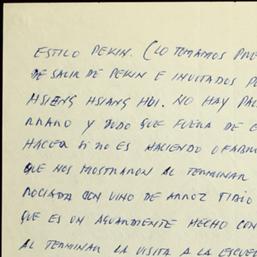 ESTILO PEKIN. (LO TOMAMOS
DE SALIR DE PEKIN E INVITADOS
HSIENG HSIANG HOI. NO HAY
Y DUDO QUE FUERA DE
HACER NO ES HACIENDO
QUE NOS MOSTRARON AL TERMINAR
ROCIADA CON VINO DE ARROZ TIBIO
QUE ES UN AGUARDIENTE HECHO CON
AL TERMINAR LA VISITA A LA